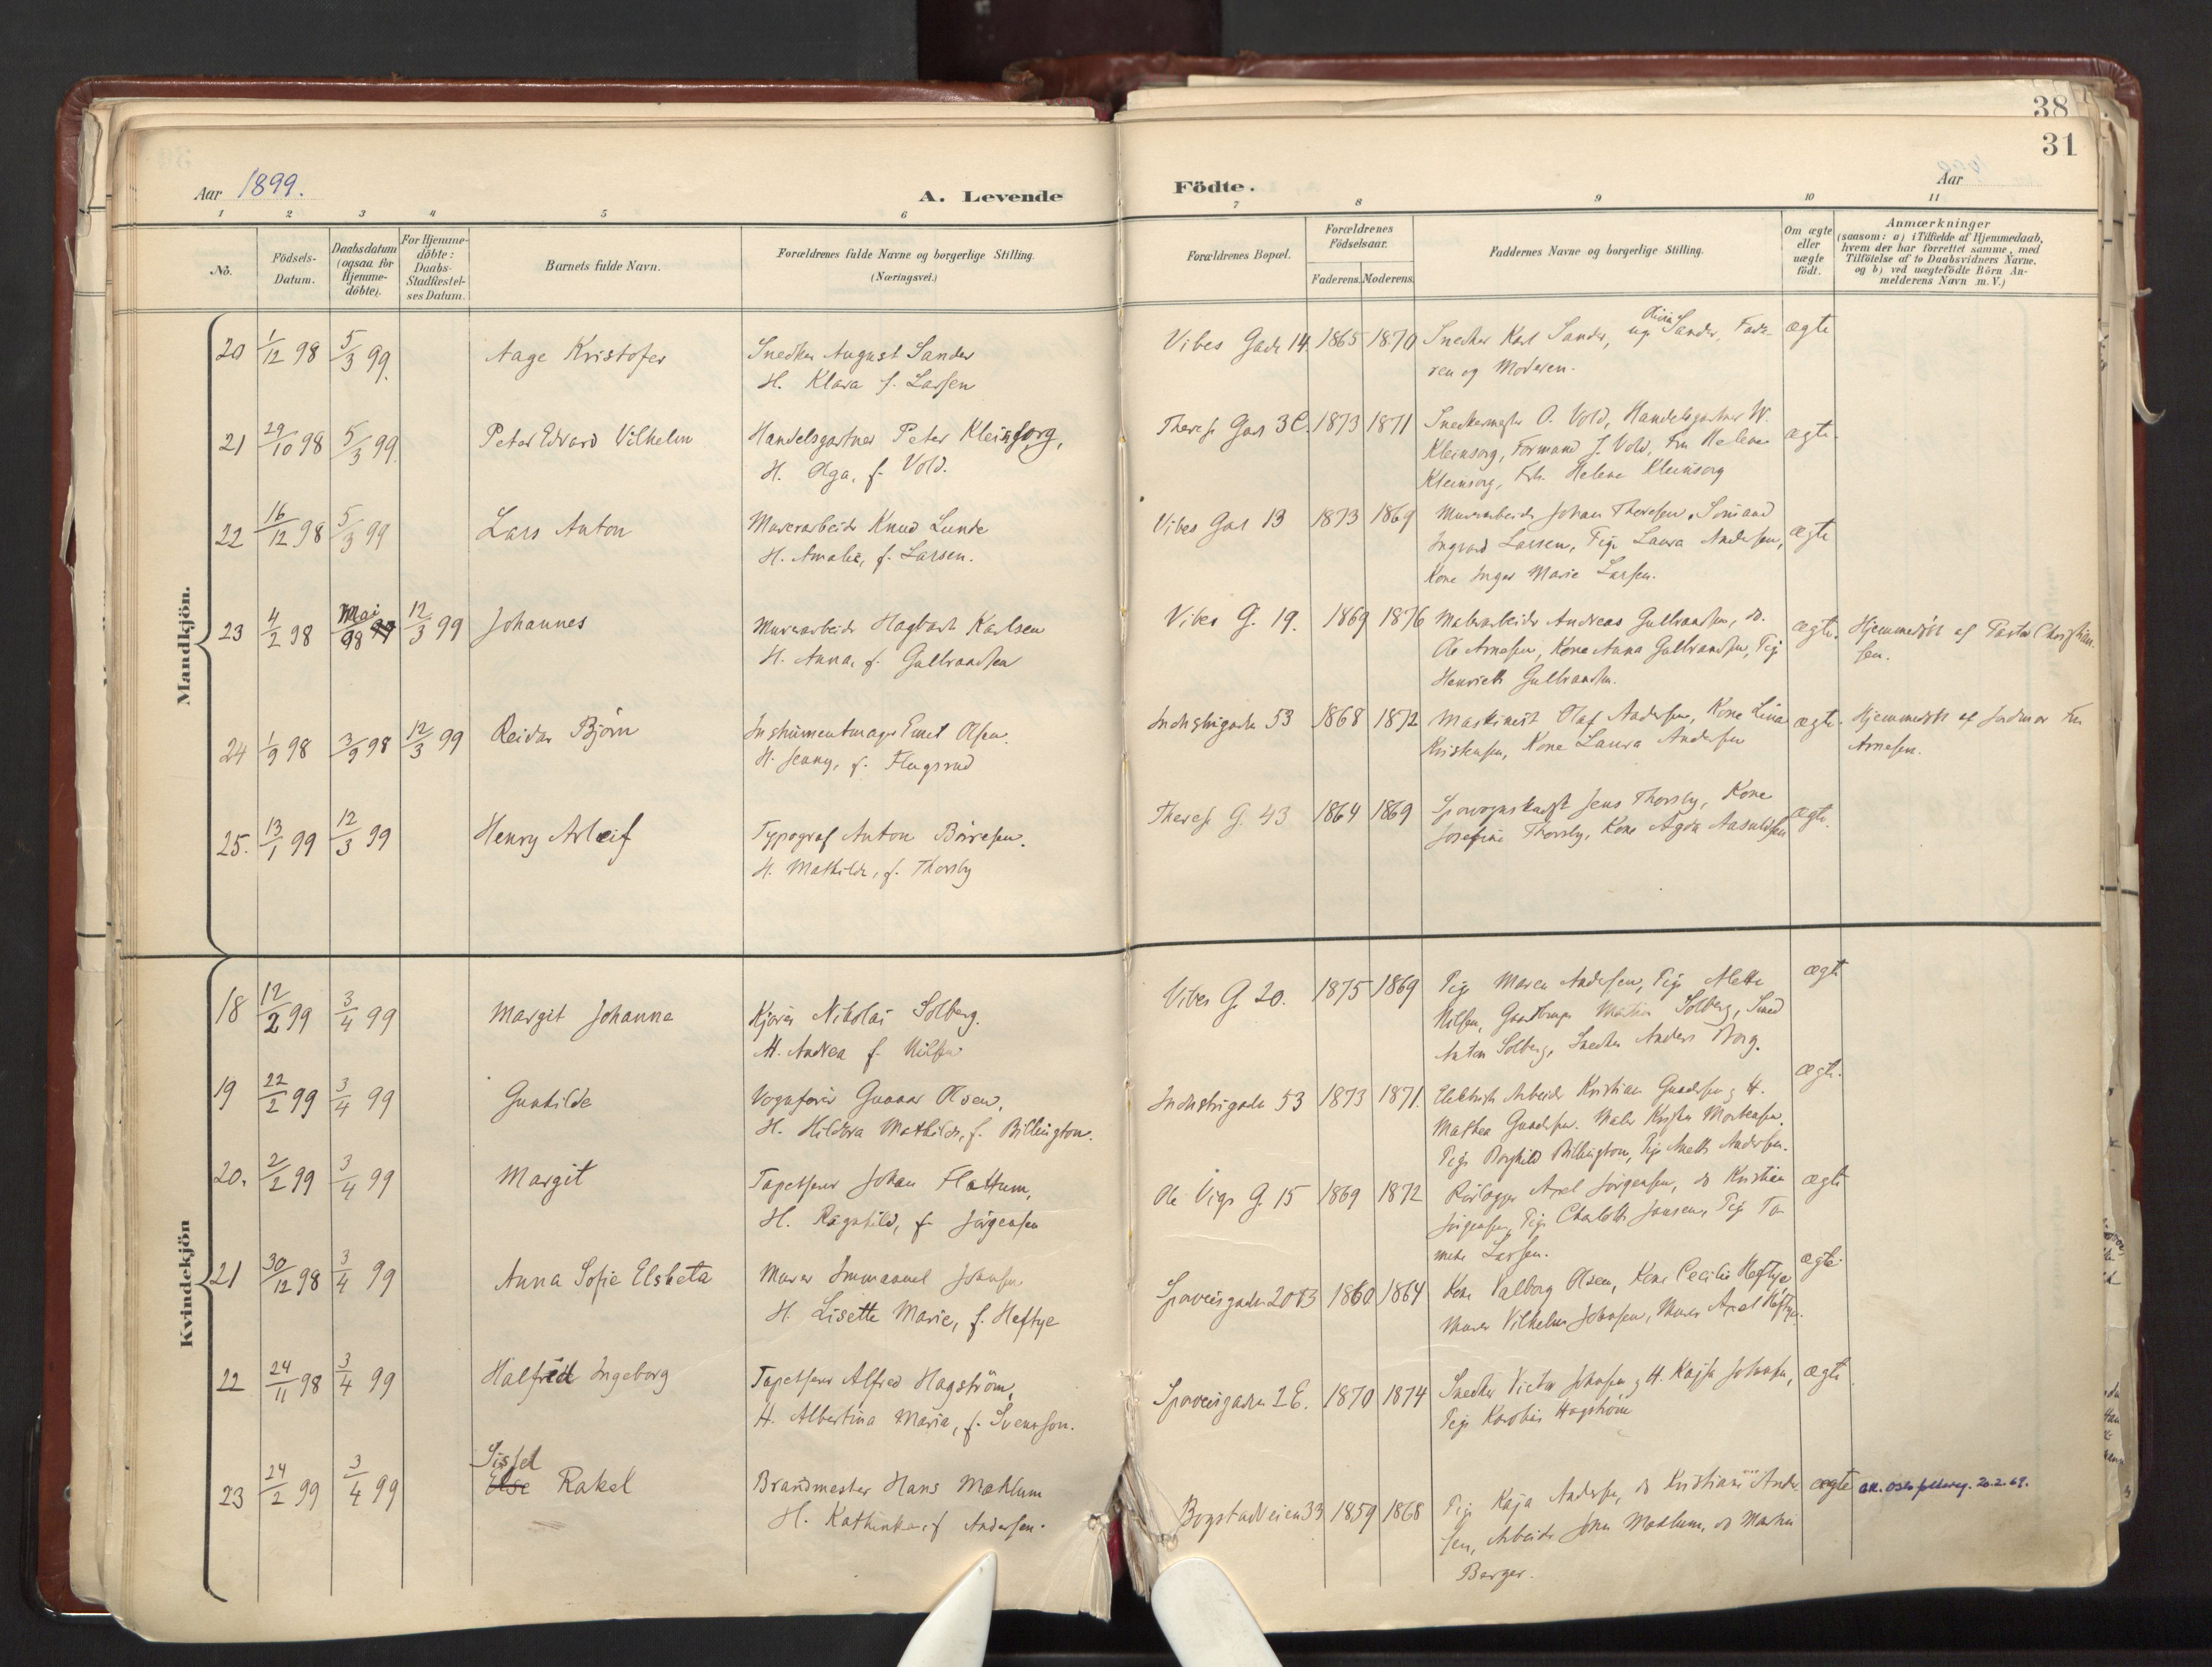 38
31
Aar 1899.
A. Levende
Födte.
Aar
1
2
3
4
5
6
7
8
9
10
11
No.
Födsels-
Datum.
Daabsdatum
(ogsaa for
Hjemme-
döbte).
For Hjemme-
döbte:
Daabs-
Stadfæstel-
ses Datum.
Barnets fulde Navn.
Forældrenes fulde Navne og borgerlige Stilling.
(Næringsvei.)
Forældrenes Bopæl.
Forældrenes
Födselsaar.
Faderens.
Moderens.
Faddernes Navne og borgerlige Stilling.
Om ægte
eller
uægte
födt.
Anmærkninger
(saasom: a) i Tilfælde af Hjemmedaab,
hvem der har forrettet samme, med
Tilföielse af to Daabsvidners Navne.
og b) ved uægtefödte Börn An-
melderens Navn m. V.)
Mandkjön.
20 1/12 98 5/3 99. Aage Kristofer
Snedker August Sander
H. Klara f. Larsen
Vibes Gade 14. 1865 1870
Snedker Karl Sander, Pige Olivia Sander, Fade-
ren og Moderen.
ægte
21 29/10 98 5/3 99. Peter Edvard Vilhelm
Handelsgartner Peter Kleinsorg,
H. Olga, f. Vold.
Therese Gad 3 C. 1873 1871
Snedkermester O. Vold, Handelsgartner W.
Kleinsorg, Formand J. Vold, Fru Helene
Kleinsorg, Frk. Helene Kleinsorg
ægte.
22 16/12 98 5/3 99 Lars Anton
Murerarbeider Knud Lunde
H. Amalie, f. Larsen.
Vibes Gad 13 1873 1869
Murerarbeider Johan Theresen, Sömand
Ingvard Larsen, Pige Laura Andersen,
Kone Inger Marie Larsen.
ægte
23 4/2 98 Mai 98 12/3 99 Johannes
Murerarbeider Hagbart Karlsen
H. Anna, f. Gulbrandsen
Vibes G. 19. 1869 1876
Malerarbeider Andreas Gulbrandsen, do.
Ole Arnesen, Kone Anna Gulbrandsen, Pige
Henriette Gulbrandsen.
ægte.
Hjemmedöbt af Pastor Christian-
sen.
24 1/9 98 3/9 98 12/3 99 Reidar Björn
Instrumentmager Emil Olsen.
H. Jenny, f. Flugsrud
Industrigaden 53 1868 1872
Maskinist Olaf Andersen, Kone Lina
Kristensen, Kone Laura Andersen
ægte.
Hjemmedöbt af Jordmor Fru
Arnesen.
25. 13/1 99 12/3 99 Henry Arleif
Typograf Anton Börresen.
H. Mathilde, f. Thorsby
Therese G. 43 1864 1869
Sporvognskusk Jens Thorsby, Kone
Josefine Thorsby, Kone Agda Aasuldsen
ægte.
Kvindekjön
18 12/2 99 3/4 99 Margit Johanne
Kjörer Nikolai Solberg.
H. Andrea f. Nilsen
Vibes G. 20. 1875 1869
Pige Maren Andersen, Pige Alette
Nilsen, Solberg, Smed
Anton Solberg, Snedker Anders Borg.
ægte
19 22/2 99 3/4 99 Gunhilde
Vognförer Gunnar Olsen,
H. Hildora Mathilde, f. Billington.
Industrigaden 53 1873 1871.
Elektrisk Arbeider Kristian Gundersen og H.
Mathea Gundersen. Maler Mortensen.
Pige Borghild Billington, Pige Anette Andersen.
ægte.
20. 2/2 99 3/4 99 Margit
Tapetserer Johan Flattum,
H. Ragnhild, f. Jörgensen
Ole Vigs G. 15 1869 1872
Rörlægger Axel Jörgensen, do Kristian
Jörgensen, Pige Charlotte Jansen, Pige To-
mine Larsen.
ægte
21 30/12 98 3/4 99 Anna Sofie Elsbeta
Murer Immanuel Johnsen
H. Lisette Marie, f. Heftye
Sporveisgaden 20 B 1860 1864
Kone Valborg Olsen, Kone Cecilie Heftye
Murer Vilhelm Johnsen, Murer Axel Heftye.
ægte.
22 24/11 98 3/4 99 Halfrid Ingeborg
Tapetserer Alfred Hagström,
H. Albertina Maria, f. Svensson.
Sporveisgaden 2 E. 1870 1874
Snedker Victor Johnsen og H. Kajsa Johnsen,
Pige Karolin Hagström
ægte
23 24/2 99 3/4 99 Sissel
Else Rakel
Brandmester Hans Mæhlum
H. Kathinka, f. Andersen.
Bogstadveien 33 1859 1868
Pige Kaja Andersen, do Kristiane Ander-
sen, Arbeider John Mæhlum, do Martin
Berger.
ægte
20.2.69.